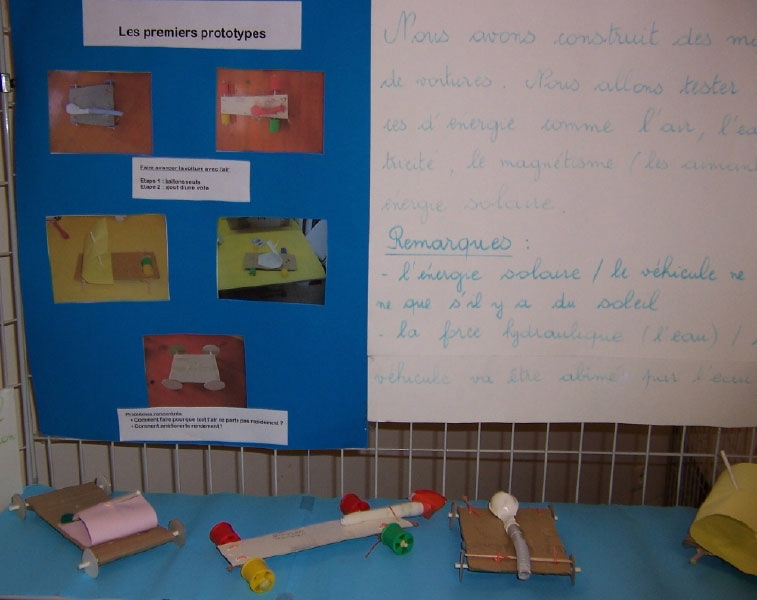 Les premiers prototypes
Faire avancer la voiture avec l'air
Etape 1 : ballons seuls
Etape 2 : ajout d'une voile
Problèmes rencontrés
• Comment faire pour que tout l'air ne parte pas rapidement ?
• Comment améliorer le rendement ?
Nous avons construit des
de voitures. Nous allons tester
d'énergie comme l'air,
le magnétisme / les
énergie solaire.
Remarques :
- l'énergie solaire / le véhicule ne
ne que s'il y a du soleil
- la force hydraulique (l'eau) /
véhicule va être abîmé par l'eau